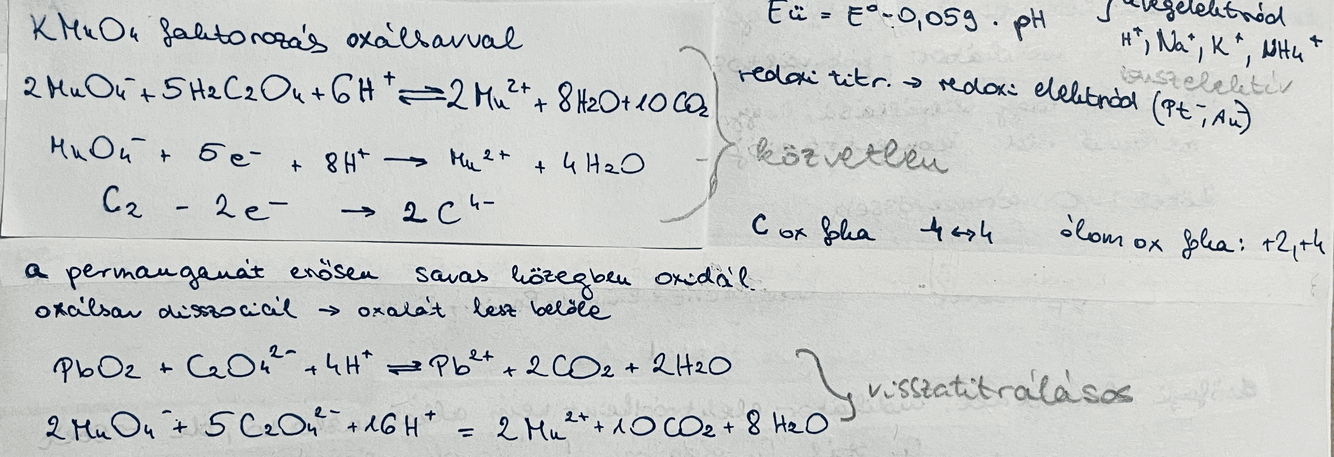 KMnO4 faktorozás oxálsavval
2MnO4⁻ + 5H2C2O4 + 6H⁺ ⇌ 2Mn²⁺ + 8H2O + 10CO2
MnO4⁻ + 5e⁻ + 8H⁺ → Mn²⁺ + 4H2O
C2 - 2e⁻ → 2C⁴⁻
közvetlen
Eü = E° - 0,059 · pH
üvegelektród
H⁺, Na⁺, K⁺, NH4⁺
ionszelektív
redoxi titr. → redoxi elektród (Pt⁻, Au)
C ox foka -4 ↔ 4 ólom ox foka: +2, +4
a permanganát erősen savas közegben oxidál.
oxálsav disszociál → oxalát lesz belőle
PbO2 + C2O4²⁻ + 4H⁺ ⇌ Pb²⁺ + 2CO2 + 2H2O
2MnO4⁻ + 5C2O4²⁻ + 16H⁺ = 2Mn²⁺ + 10CO2 + 8H2O
visszatitrálásos